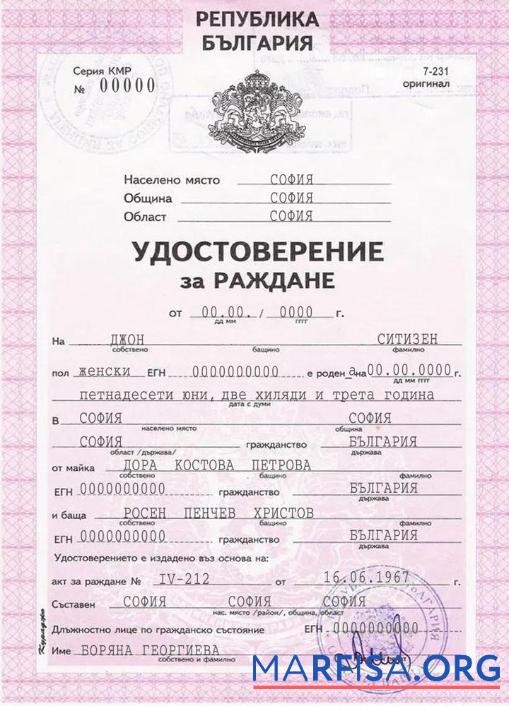 РЕПУБЛИКА
БЪЛГАРИЯ
Серия КМР
№ 00000
7-231
оригинал
Населено място СОФИЯ
Община СОФИЯ
Област СОФИЯ
УДОСТОВЕРЕНИЕ
за РАЖДАНЕ
от 00.00. / 0000 г.
дд мм гггг
На ДЖОН СИТИЗЕН
собствено бащино фамилно
пол женски ЕГН 0000000000 е роден а на 00.00.0000 г.
дд мм гггг
петнадесети юни, две хиляди и трета година
дата с думи
в СОФИЯ СОФИЯ
населено място община
СОФИЯ гражданство БЪЛГАРИЯ
област /държава/ държава
от майка ДОРА КОСТОВА ПЕТРОВА
собствено бащино фамилно
ЕГН 0000000000 гражданство БЪЛГАРИЯ
държава
и баща РОСЕН ПЕНЧЕВ ХРИСТОВ
собствено бащино фамилно
ЕГН 0000000000 гражданство БЪЛГАРИЯ
държава
Удостоверението е издадено въз основа на:
акт за раждане № IV-212 от 16.06.1967 г.
Съставен СОФИЯ СОФИЯ СОФИЯ
нас. място /район/, община, област
Длъжностно лице по гражданско състояние ЕГН 0000000000
Име БОРЯНА ГЕОРГИЕВА
собствено и фамилно
MARFISA.ORG